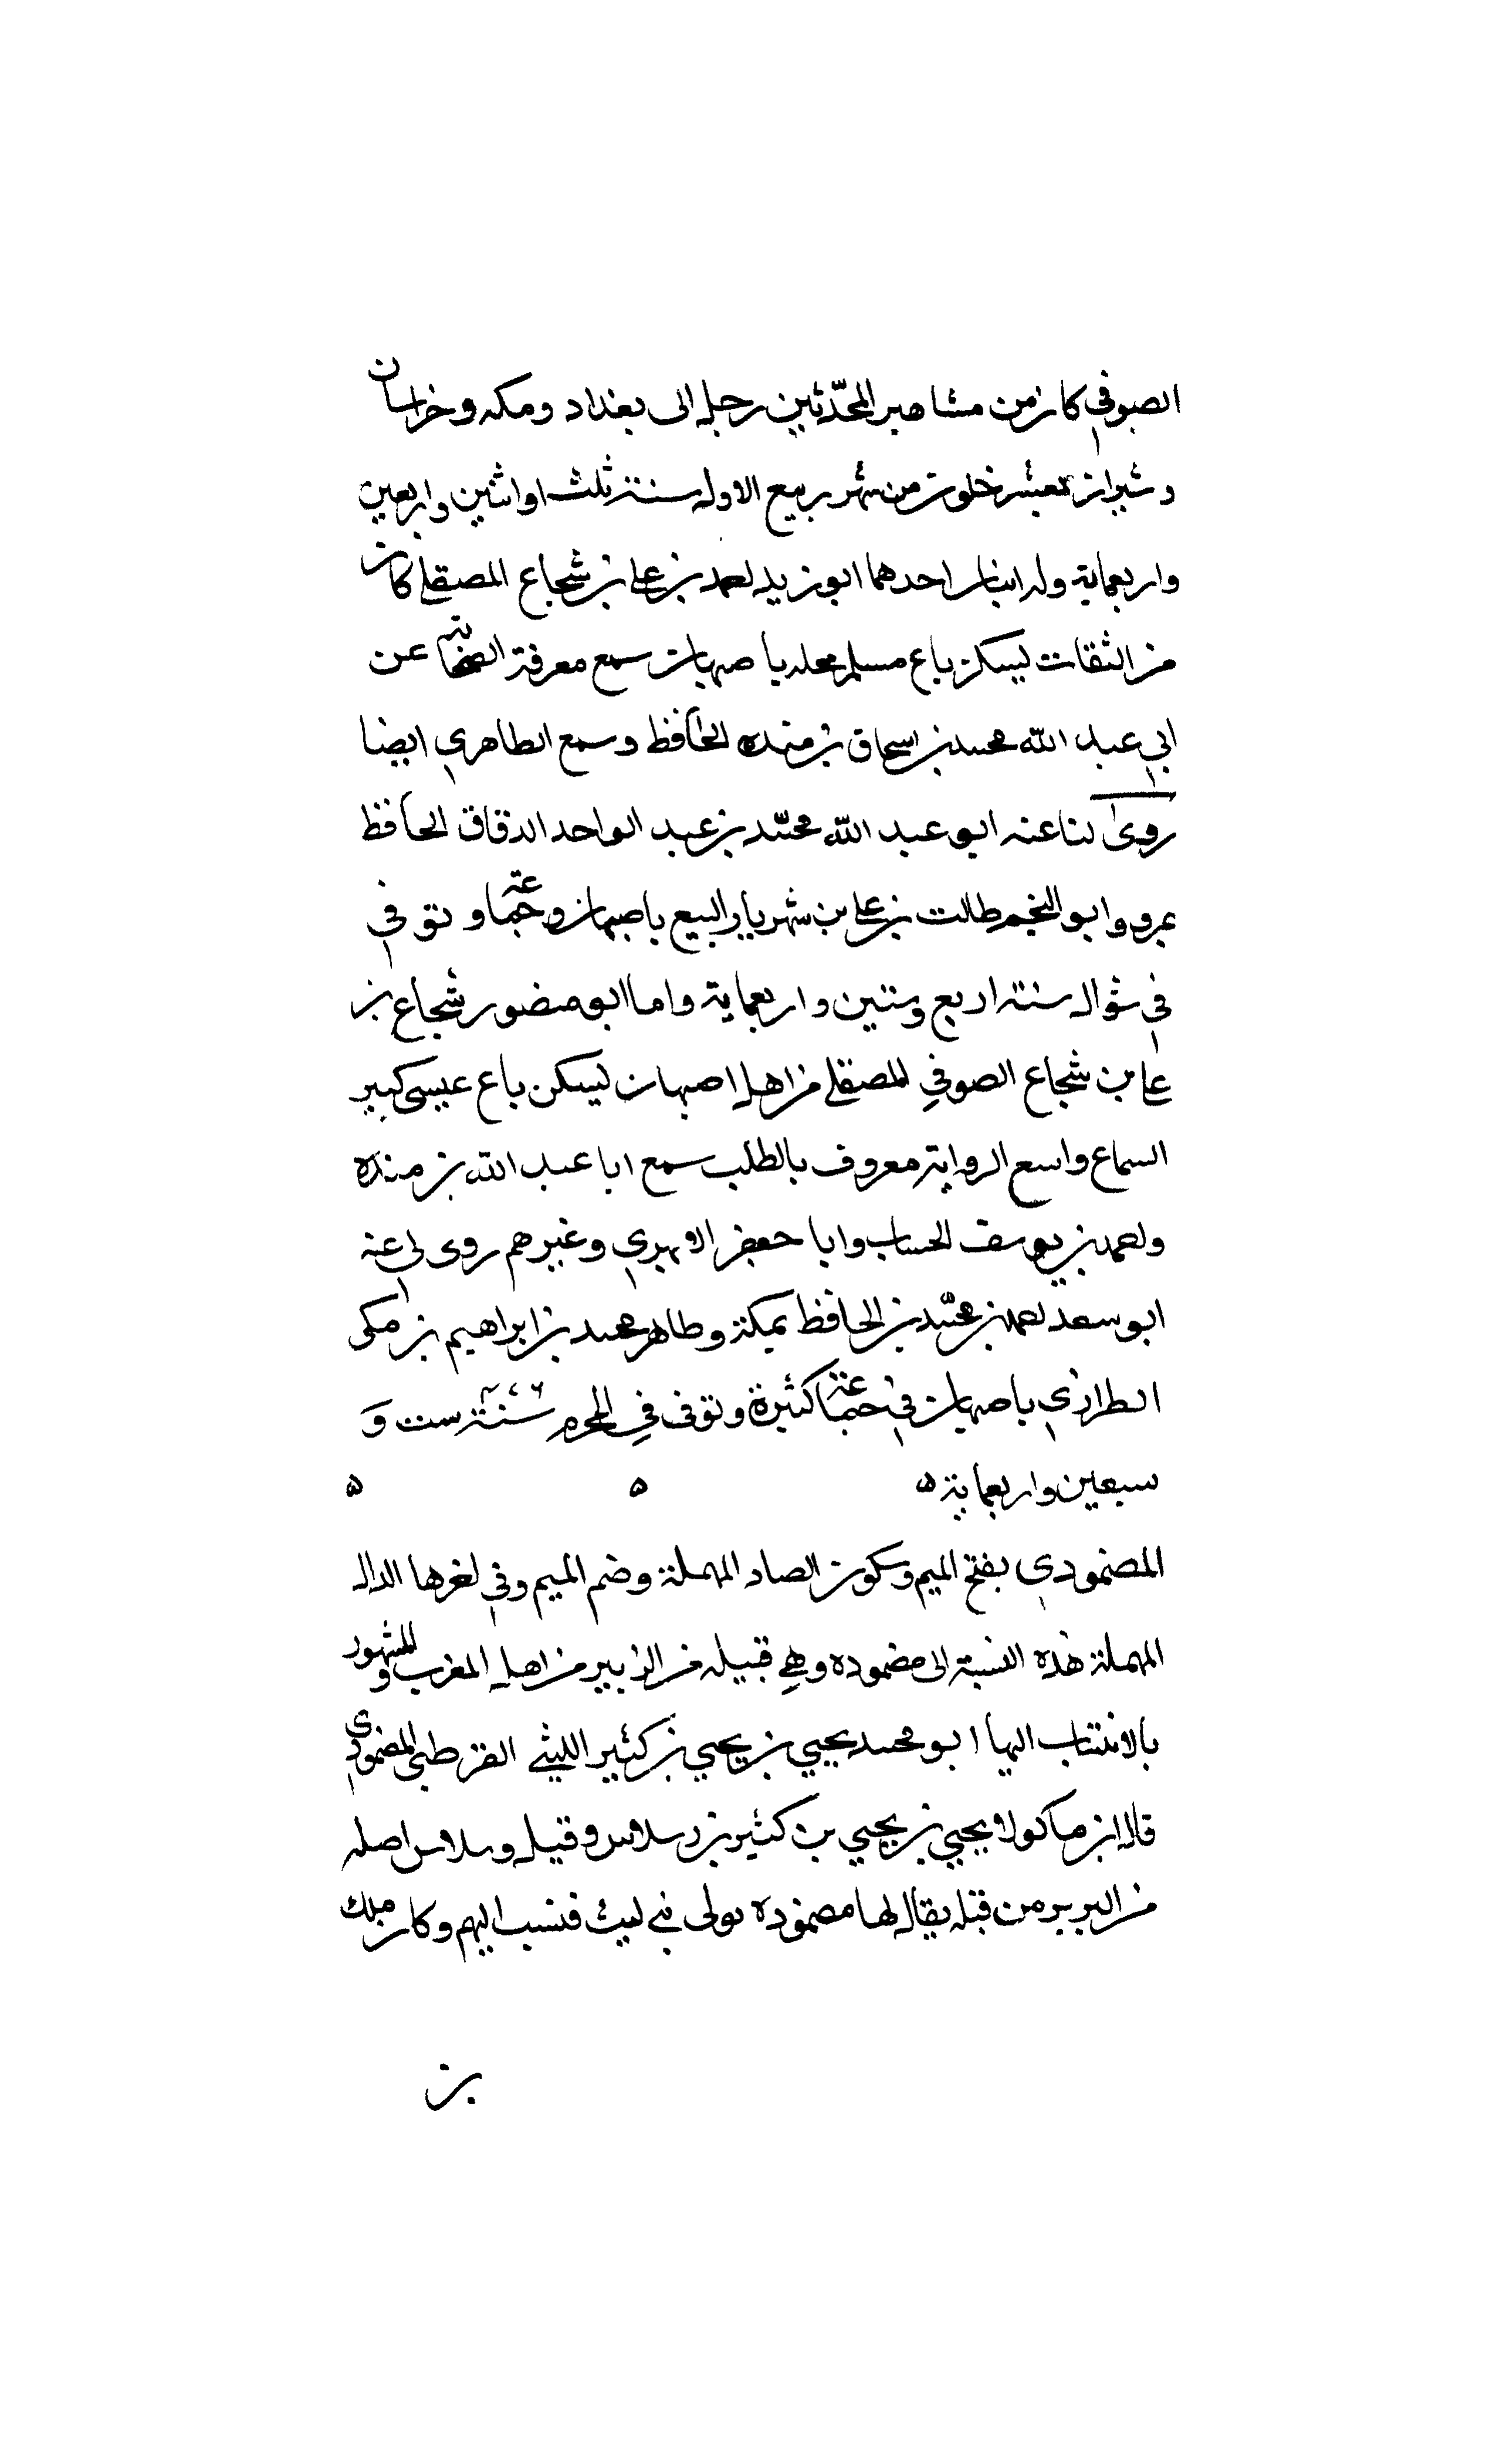 الصوفي كان من مشاهير المحدثين رحل الى بغداد ومكه وخراسان
وشيراز لعشر خلون من شهر ربيع الاول سنة ثلث او اثنين واربعين
واربعماية وله ابنان احدهما ابو زيد احمد بن على بن شجاع المصقلى كان
من الثقات يسكن باغ مسلم محله باصبهان سمع معرفة الصحابة عن
ابي عبد الله محمد بن اسحاق بن منده الحافظ وسمع الطاهري ايضا
روى لنا عنه ابو عبد الله محمد بن عبد الواحد الدقاق الحافظ
بمرو وابو النجم طالت بن على بن شهريار البيع باصبهان وجماعة وتوفي
في شوال سنة اربع وستين واربعماية واما ابو منصور شجاع بن
على بن شجاع الصوفي المصقلى من اهل اصبهان يسكن باغ عيسى كبير
السماع واسع الرواية معروف بالطلب سمع ابا عبد الله بن منده
واحمد بن يوسف الخشاب وابا جعفر الابهري وغيرهم روى لى عنه
ابو سعد احمد بن محمد بن الحافظ بمكة وطاهر محمد بن ابراهيم بن مكى
الطرازي باصبهان في جماعة كثيرة وتوفى في المحرم سنة ٤٧٦ ست و
سبعين واربعماية ه ه ه
المصمودي بفتح الميم وسكون الصاد المهملة وضم الميم وفي اخرها الدال
المهملة هذه النسبة الى مصموده وهي قبيله من البربر من اهل المغرب والمشهور
بالانتساب اليها ابو محمد يحيي بن يحيي بن كثير الليثى القرطبى المصمودي
قال ابن ماكولا يحيي بن يحيي بن كثير بن وسلاس وقيل وسلاس اصله
من البربر من قبله يقال لها مصموده تولى بني ليث فنسب اليهم وكان ملك
بن